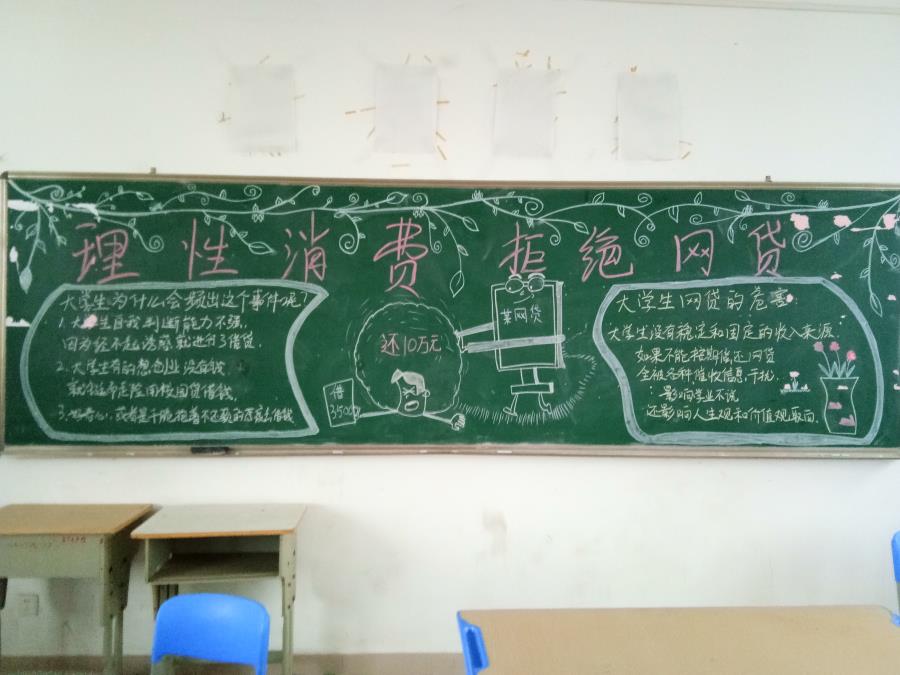 理性消费 拒绝网贷
大学生为什么会频出这个事件呢?
1.大学生自我判断能力不强,
因为经不起诱惑就进行了借贷.
2.大学生有的想创业没有钱
借钱
3.好奇心,或者是
借
3500
还10万元
某网贷
大学生网贷的危害:
大学生没有稳定和固定的收入来源
如果不能按期偿还网贷
会被各种催收信息干扰,
影响学业不说
还影响人生观和价值观取向.